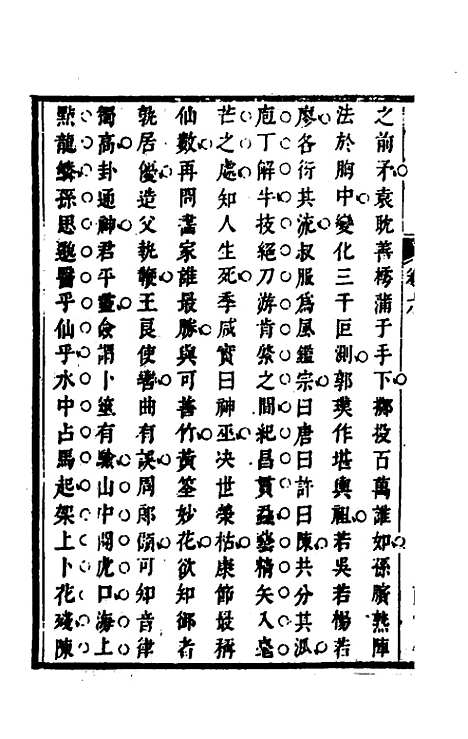 之前矛袁耽善樗蒲于手下擲投百萬誰如孫臏熟陣
法於胸中變化三千叵測郭璞作堪輿祖若吳若楊若
廖各衍其流叔服爲風鑑宗曰唐曰許曰陳共分其派
庖丁解牛技絕刀游肯綮之間紀昌貫蝨藝精矢入毫
芒之處知人生死季咸實曰神巫决世榮枯康節最稱
仙數再問畵家誰最勝與可善竹黃筌妙花欲知御者
孰居優造父執鞭王良使轡曲有誤周郎顧可知音律
獨高卦通神君平靈僉謂卜筮有驗山中開虎口海上
㸃龍鱗孫思邈醫乎仙乎水中占馬起架上卜花殘陳
卷六